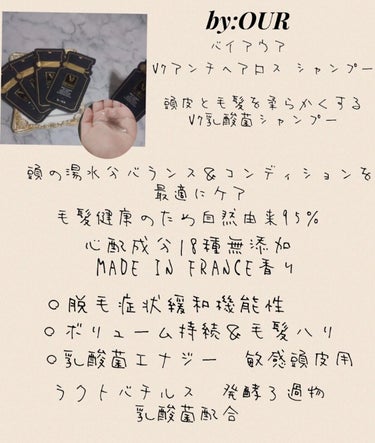 by:OUR
バイアウア
V7アンチヘアロス シャンプー
頭皮と毛髪を柔らかくする
V7乳酸菌シャンプー
頭の湯水分バランス&コンディションを
最適にケア
毛髪健康のため自然由来95%
心配成分18種無添加
MADE IN FRANCE香り
○脱毛症状緩和機能性
○ボリューム持続&毛髪ハリ
○乳酸菌エナジー 敏感頭皮用
ラクトバチルス 発酵ろ過物
乳酸菌配合